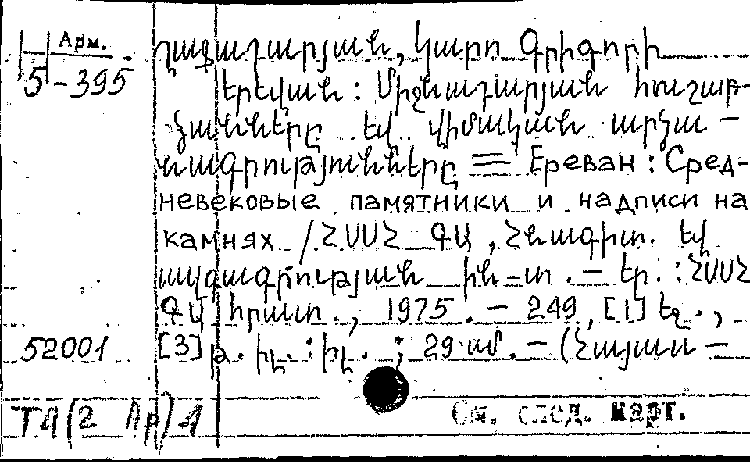 Арм.
5-395
Ղաֆադարյան, Կարո Գրիգորի
Երևան: Միջնադարյան հուշար-
ձանները եվ վիմական արձա-
նագրությունները = Ереван: Сред-
невековые памятники и надписи на
камнях / ՀՍՍՀ ԳԱ, Հնագիտ. եվ
ազգագրության ին-տ. - Եր.: ՀՍՍՀ
ԳԱ հրատ., 1975. - 249, [1] էջ.,
52001 [3] թ. իլ.: իլ.; 29 սմ. - (Հայաս-
Т4(2 Ар)4
См. след. карт.